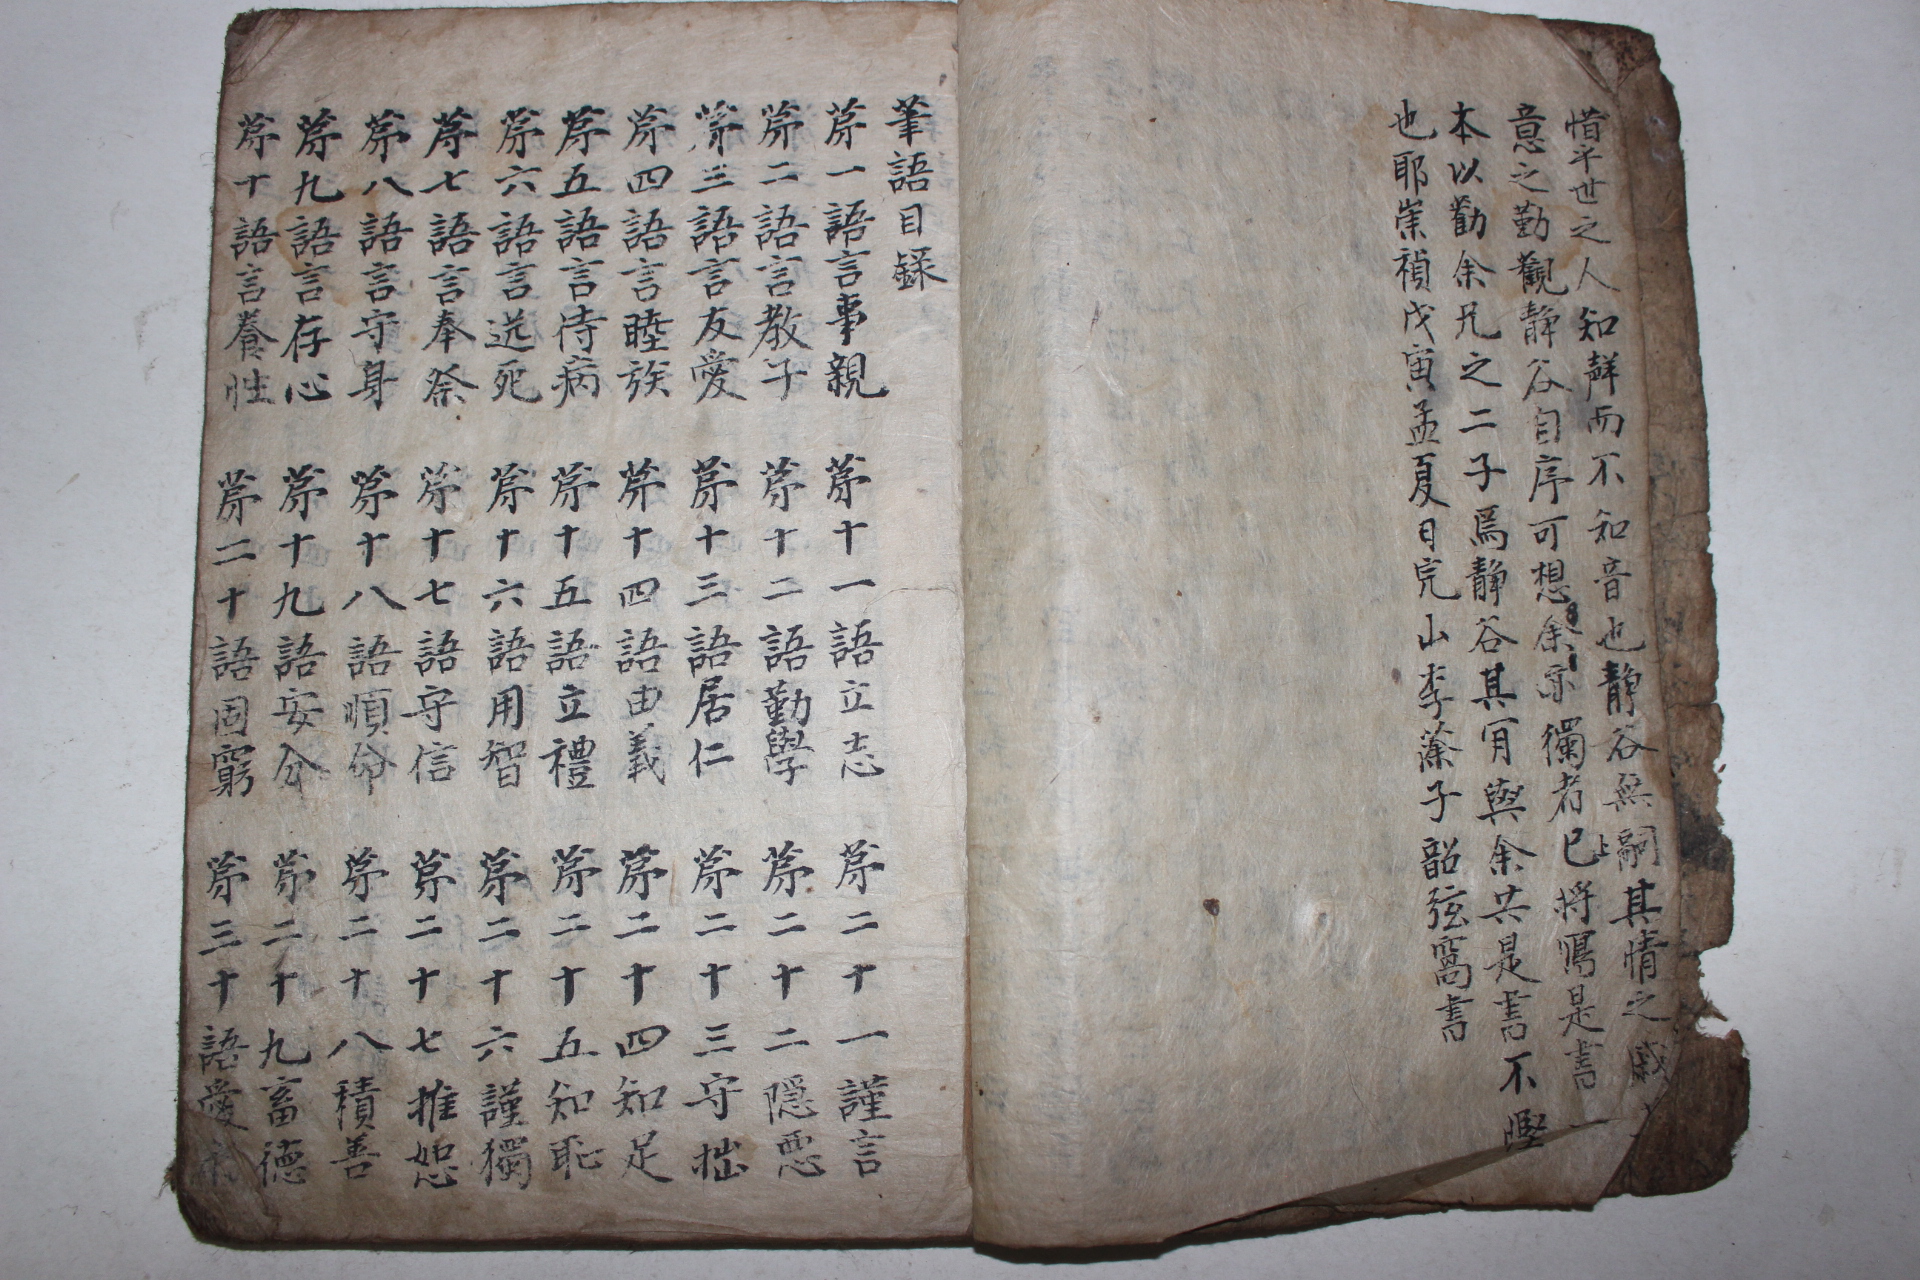 惜乎世之人知聲而不知音也靜谷無嗣其情之慼
意之勤觀靜谷自序可想余宗獨者已將寫是書一
本以勸余兄之二子爲靜谷其肎與余共是書不慳
也耶崇禎戊寅孟夏日完山李藻子韶弦窩書
筆語目錄
苐一語言事親 苐十一語立志 苐二十一謹言
苐二語言教子 苐十二語勤學 苐二十二隠悪
苐三語言友愛 苐十三語居仁 苐二十三守拙
苐四語言睦族 苐十四語由義 苐二十四知足
苐五語言侍病 苐十五語立禮 苐二十五知恥
苐六語言送死 苐十六語用智 苐二十六謹獨
苐七語言奉祭 苐十七語守信 苐二十七推恕
苐八語言守身 苐十八語順命 苐二十八積善
苐九語言存心 苐十九語安分 苐二十九畜德
苐十語言養性 苐二十語固窮 苐三十語愛